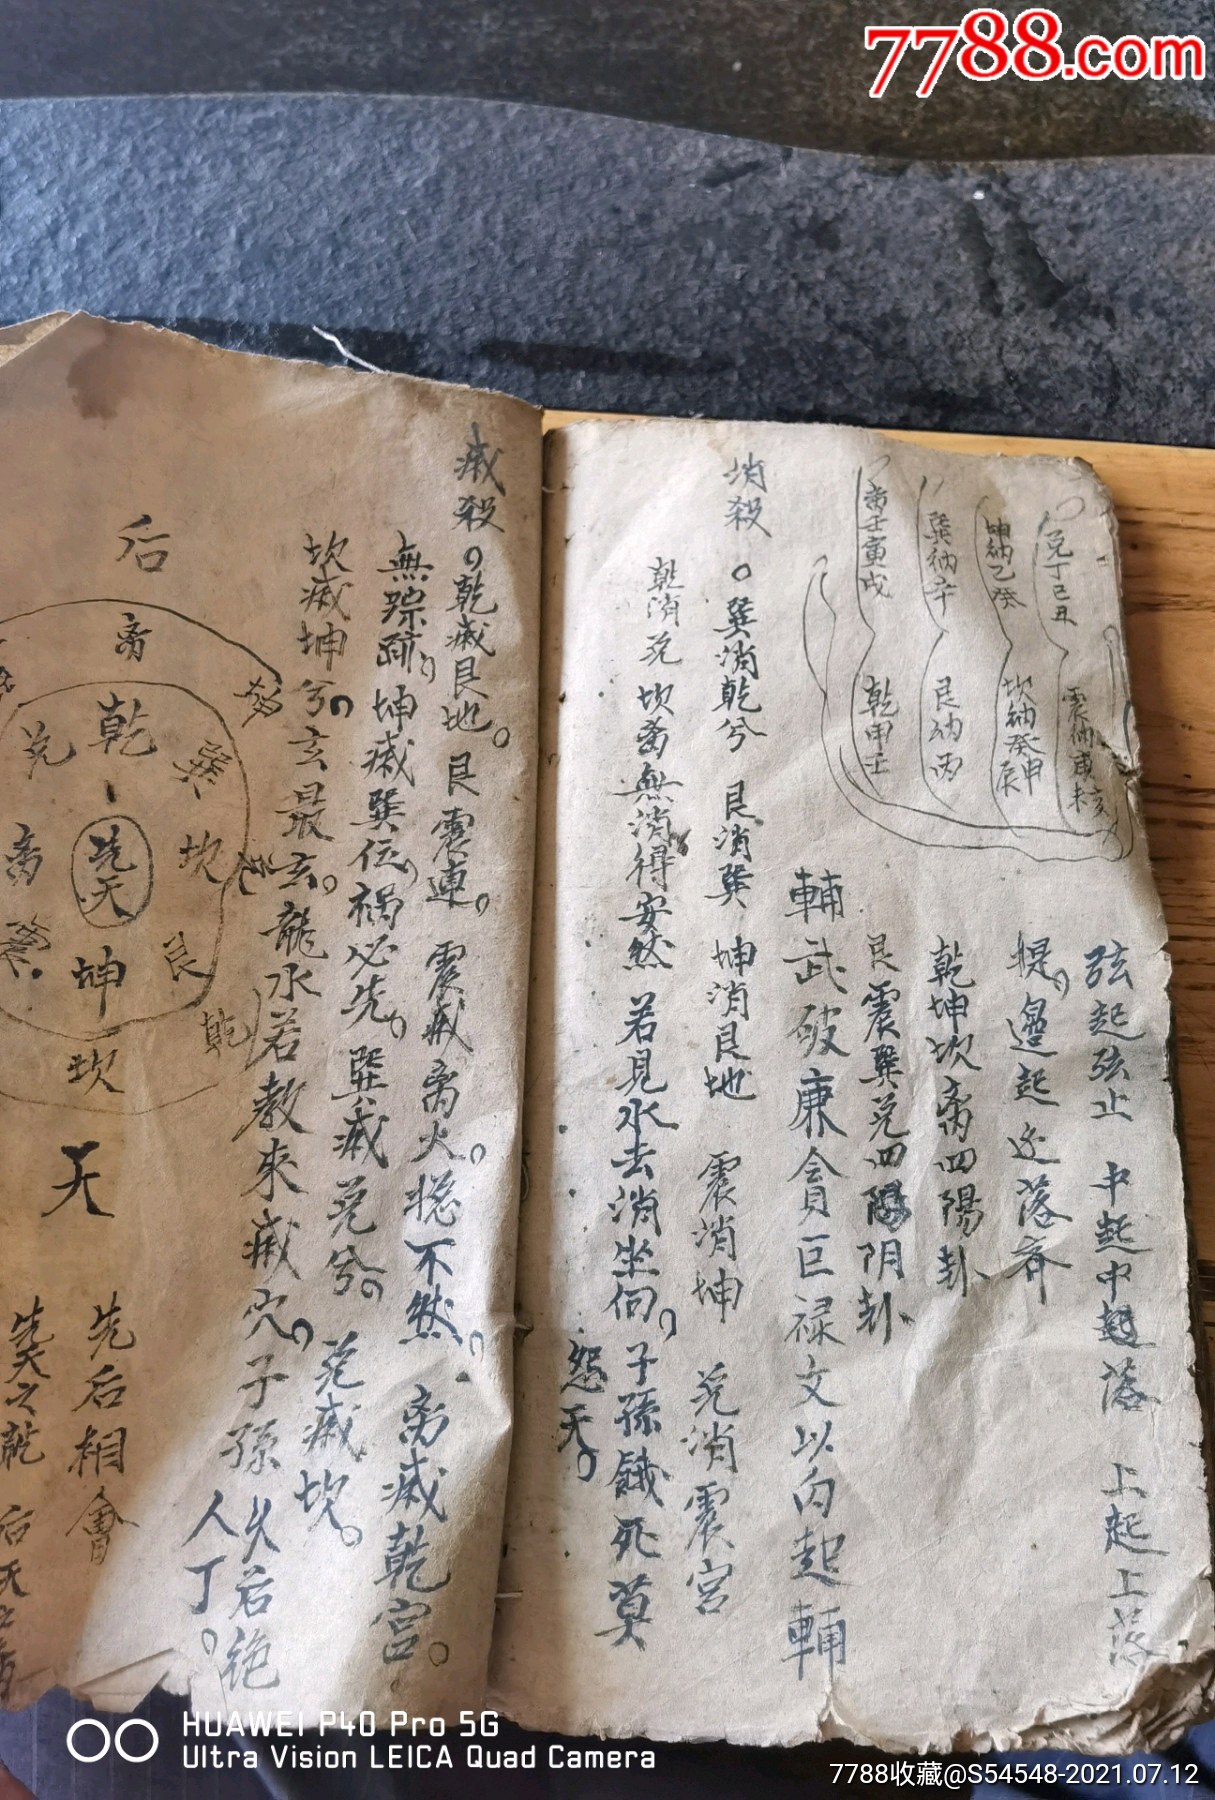 7788.com
兑丁巳丑
震納庚亥未
坤納乙癸
坎納癸申辰
巽納辛
艮納丙
离壬寅戌
乾甲壬
弦起弦止 中起中落 上起上落
提邊起还落齐
乾坤坎离四陽卦
艮震巽兑四阴卦
輔武破廉貪巨禄文以内起輔
消殺
巽消乾兮 艮消巽 坤消艮地 震消坤 兑消震宫
乾消兑 坎离無消得安然 若見水去消坐向 子孫餓死莫
怨天
滅殺
乾滅艮地 艮震連 震滅离火 不然 离滅乾宫
無踪 坤滅巽位 禍必先 巽滅兑兮 兑滅坎
坎滅坤兮 玄最玄 龍水若教來滅穴 子孫 后绝
人丁
后
离
乾
兑
巽
先天
坎
离
坤
艮
乾
坎
天
先后相會
HUAWEI P40 Pro 5G
Ultra Vision LEICA Quad Camera
7788收藏@S54548-2021.07.12